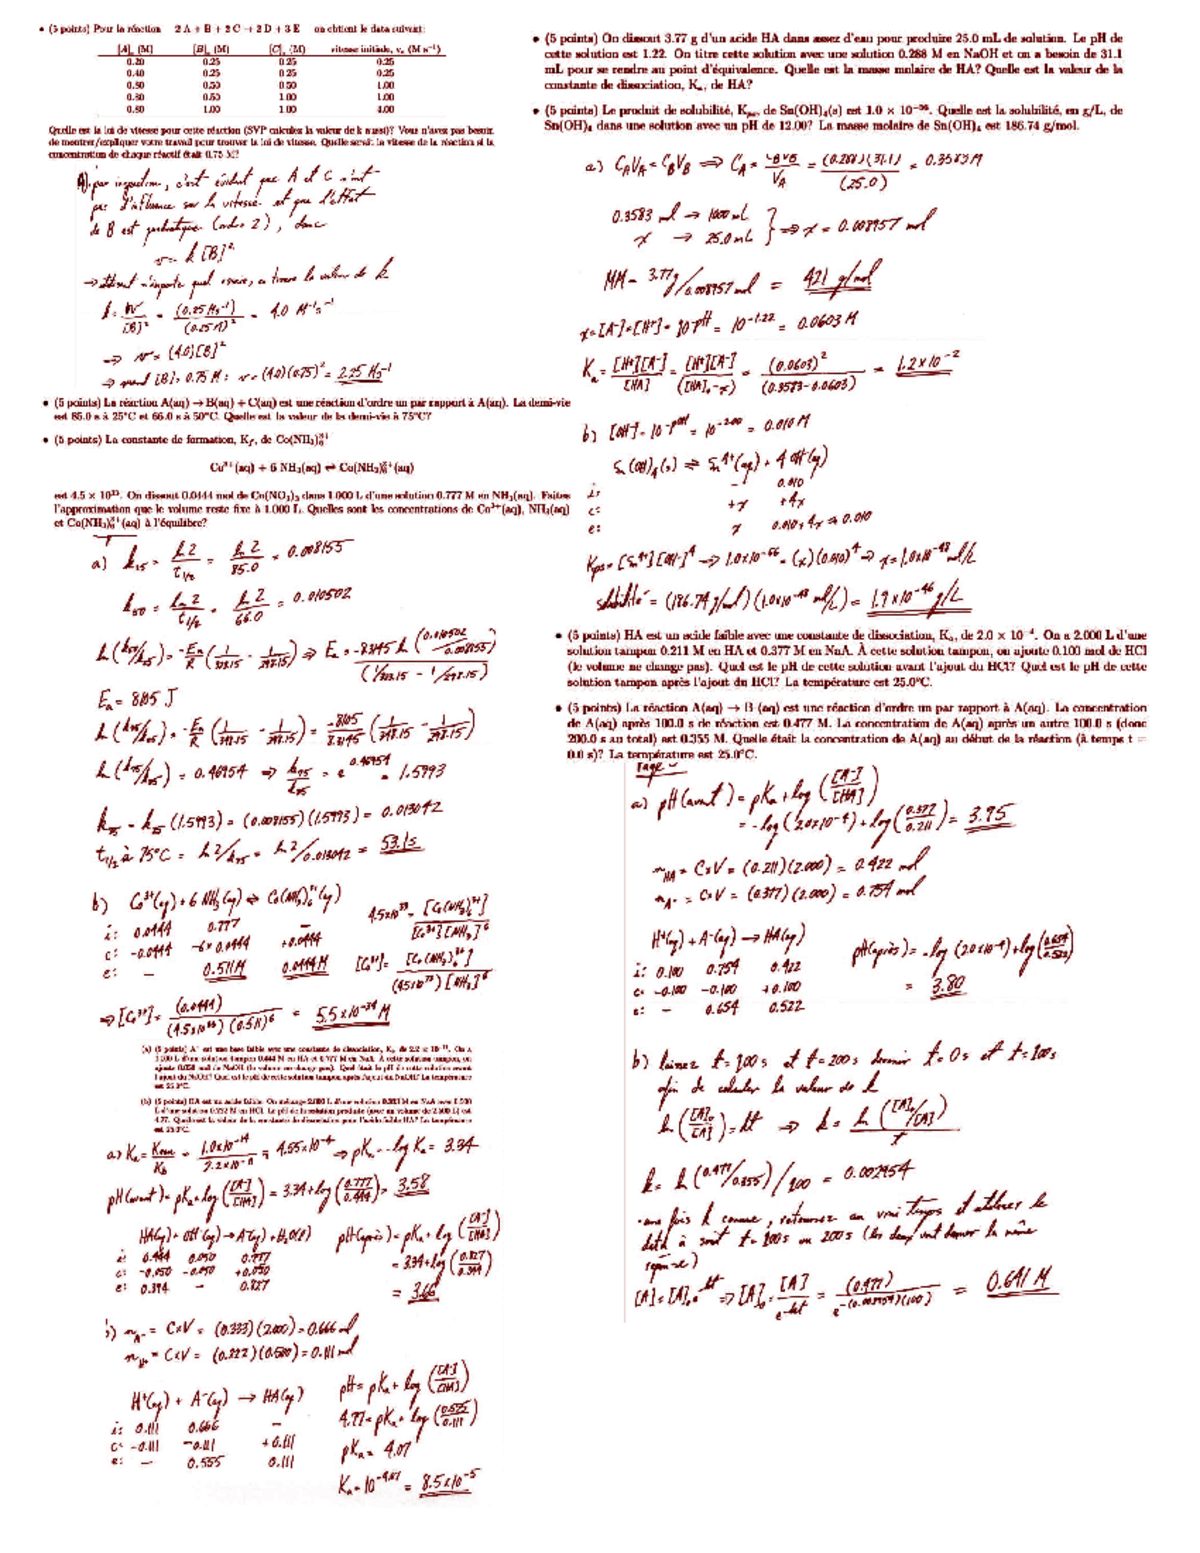 • (5 points) Pour la réaction 2 A + B + 2 C → 2 D + 3 E on obtient le data suivant:
[A]₀ (M) [B]₀ (M) [C]₀ (M) vitesse initiale, v₀ (M s⁻¹)
0.20 0.25 0.25 0.25
0.40 0.25 0.25 0.25
0.80 0.50 0.50 1.00
0.80 0.50 1.00 1.00
0.80 1.00 1.00 4.00
Quelle est la loi de vitesse pour cette réaction (SVP calculez la valeur de k aussi)? Vous n'avez pas besoin
de montrer/expliquer votre travail pour trouver la loi de vitesse. Quelle serait la vitesse de la réaction si la
concentration de chaque réactif était 0.75 M?
par inspection, c'est évident que A et C n'ont
pas d'influence sur la vitesse et que l'effet
de B est quadratique (ordre 2), donc
v = k [B]²
→ utilisant n'importe quel essaie, on trouve la valeur de k
k = v/[B]² = (0.25 M s⁻¹)/(0.25 M)² = 4.0 M⁻¹s⁻¹
⇒ v = (4.0)[B]²
⇒ quand [B] = 0.75 M: v = (4.0)(0.75)² = 2.25 M s⁻¹
• (5 points) La réaction A(aq) → B(aq) + C(aq) est une réaction d'ordre un par rapport à A(aq). La demi-vie
est 85.0 s à 25°C et 66.0 s à 50°C. Quelle est la valeur de la demi-vie à 75°C?
• (5 points) La constante de formation, K_f, de Co(NH₃)₆³⁺
Co³⁺(aq) + 6 NH₃(aq) ⇌ Co(NH₃)₆³⁺(aq)
est 4.5 × 10³³. On dissout 0.0444 mol de Co(NO₃)₃ dans 1.000 L d'une solution 0.777 M en NH₃(aq). Faites
l'approximation que le volume reste fixe à 1.000 L. Quelles sont les concentrations de Co³⁺(aq), NH₃(aq)
et Co(NH₃)₆³⁺(aq) à l'équilibre?
a) k₂₅ = ln 2/t₁/₂ = ln 2/85.0 = 0.008155
k₅₀ = ln 2/t₁/₂ = ln 2/66.0 = 0.010502
ln(k₅₀/k₂₅) = -Ea/R (1/323.15 - 1/298.15) ⇒ Ea = -8.3145 ln(0.010502/0.008155)/(1/323.15 - 1/298.15)
Ea = 8105 J
ln(k₇₅/k₂₅) = -Ea/R (1/348.15 - 1/298.15) = -8105/8.3145 (1/348.15 - 1/298.15)
ln(k₇₅/k₂₅) = 0.46954 ⇒ k₇₅/k₂₅ = e^0.46954 = 1.5993
k₇₅ = k₂₅ (1.5993) = (0.008155)(1.5993) = 0.013042
t₁/₂ à 75°C = ln 2/k₇₅ = ln 2/0.013042 = 53.1 s
b) Co³⁺(aq) + 6 NH₃(aq) ⇌ Co(NH₃)₆³⁺(aq)
i: 0.0444 0.777 –
c: -0.0444 -6×0.0444 +0.0444
e: – 0.511 M 0.0444 M
4.5x10³³ = [Co(NH₃)₆³⁺]/[Co³⁺][NH₃]⁶
[Co³⁺] = [Co(NH₃)₆³⁺]/(4.5x10³³)[NH₃]⁶
⇒ [Co³⁺] = (0.0444)/(4.5x10³³)(0.511)⁶ = 5.5 x 10⁻³⁴ M
a) Ka = Keau/Kb = 1.0x10⁻¹⁴/2.2x10⁻¹¹ = 4.55x10⁻⁴ ⇒ pKa = -log Ka = 3.34
pH(avant) = pKa + log([A⁻]/[HA]) = 3.34 + log(0.777/0.444) = 3.58
HA(aq) + OH⁻(aq) → A⁻(aq) + H₂O(l)
i: 0.444 0.050 0.777
c: -0.050 -0.050 +0.050
e: 0.394 – 0.827
pH(après) = pKa + log([A⁻]/[HA])
= 3.34 + log(0.827/0.394)
= 3.66
b) n_A⁻ = C×V = (0.333)(2.000) = 0.666 mol
n_H⁺ = C×V = (0.222)(0.500) = 0.111 mol
H⁺(aq) + A⁻(aq) → HA(aq)
i: 0.111 0.666 –
c: -0.111 -0.111 +0.111
e: – 0.555 0.111
pH = pKa + log([A⁻]/[HA])
4.77 = pKa + log(0.555/0.111)
pKa = 4.07
Ka = 10⁻⁴·⁰⁷ = 8.5 x 10⁻⁵
• (5 points) On dissout 3.77 g d'un acide HA dans assez d'eau pour produire 25.0 mL de solution. Le pH de
cette solution est 1.22. On titre cette solution avec une solution 0.288 M en NaOH et on a besoin de 31.1
mL pour se rendre au point d'équivalence. Quelle est la masse molaire de HA? Quelle est la valeur de la
constante de dissociation, Kₐ, de HA?
• (5 points) Le produit de solubilité, K_ps, de Sn(OH)₄(s) est 1.0 × 10⁻⁵⁶. Quelle est la solubilité, en g/L, de
Sn(OH)₄ dans une solution avec un pH de 12.00? La masse molaire de Sn(OH)₄ est 186.74 g/mol.
a) C_A V_A = C_B V_B ⇒ C_A = C_B V_B/V_A = (0.288)(31.1)/(25.0) = 0.3583 M
0.3583 mol → 1000 mL
x → 25.0 mL } ⇒ x = 0.008957 mol
MM = 3.77 g/0.008957 mol = 421 g/mol
x = [A⁻] = [H⁺] = 10⁻ᵖᴴ = 10⁻¹·²² = 0.0603 M
Ka = [H⁺][A⁻]/[HA] = [H⁺][A⁻]/([HA]₀-x) = (0.0603)²/(0.3583-0.0603) = 1.2 x 10⁻²
b) [OH⁻] = 10⁻ᵖᴼᴴ = 10⁻²·⁰⁰ = 0.010 M
Sn(OH)₄(s) ⇌ Sn⁴⁺(aq) + 4 OH⁻(aq)
i: – 0.010
c: +x +4x
e: x 0.010+4x ≈ 0.010
Kps = [Sn⁴⁺][OH⁻]⁴ → 1.0x10⁻⁵⁶ = (x)(0.010)⁴ ⇒ x = 1.0x10⁻⁴⁸ mol/L
solubilité = (186.74 g/mol)(1.0x10⁻⁴⁸ mol/L) = 1.9 x 10⁻⁴⁶ g/L
• (5 points) HA est un acide faible avec une constante de dissociation, Kₐ, de 2.0 × 10⁻⁴. On a 2.000 L d'une
solution tampon 0.211 M en HA et 0.377 M en NaA. À cette solution tampon, on ajoute 0.100 mol de HCl
(le volume ne change pas). Quel est le pH de cette solution avant l'ajout du HCl? Quel est le pH de cette
solution tampon après l'ajout du HCl? La température est 25.0°C.
• (5 points) La réaction A(aq) → B (aq) est une réaction d'ordre un par rapport à A(aq). La concentration
de A(aq) après 100.0 s de réaction est 0.477 M. La concentration de A(aq) après un autre 100.0 s (donc
200.0 s au total) est 0.355 M. Quelle était la concentration de A(aq) au début de la réaction (à temps t =
0.0 s)? La température est 25.0°C.
a) pH(avant) = pKa + log([A⁻]/[HA])
= -log(2.0x10⁻⁴) + log(0.377/0.211) = 3.95
n_HA = C×V = (0.211)(2.000) = 0.422 mol
n_A⁻ = C×V = (0.377)(2.000) = 0.754 mol
H⁺(aq) + A⁻(aq) → HA(aq)
i: 0.100 0.754 0.422
c: -0.100 -0.100 +0.100
e: – 0.654 0.522
pH(après) = -log(2.0x10⁻⁴) + log(0.654/0.522)
= 3.80
b) laissez t=100s et t=200s devenir t=0s et t=100s
afin de calculer la valeur de k
ln([A]₀/[A]) = kt ⇒ k = ln([A]₀/[A])/t
k = ln(0.477/0.355)/100 = 0.002954
- une fois k connue, retournez au vrai temps et utiliser le
data à soit t=100s ou 200s (les deux vont donner la même
réponse)
[A] = [A]₀e⁻ᵏᵗ ⇒ [A]₀ = [A]/e⁻ᵏᵗ = (0.477)/e^-(0.002954)(100) = 0.641 M